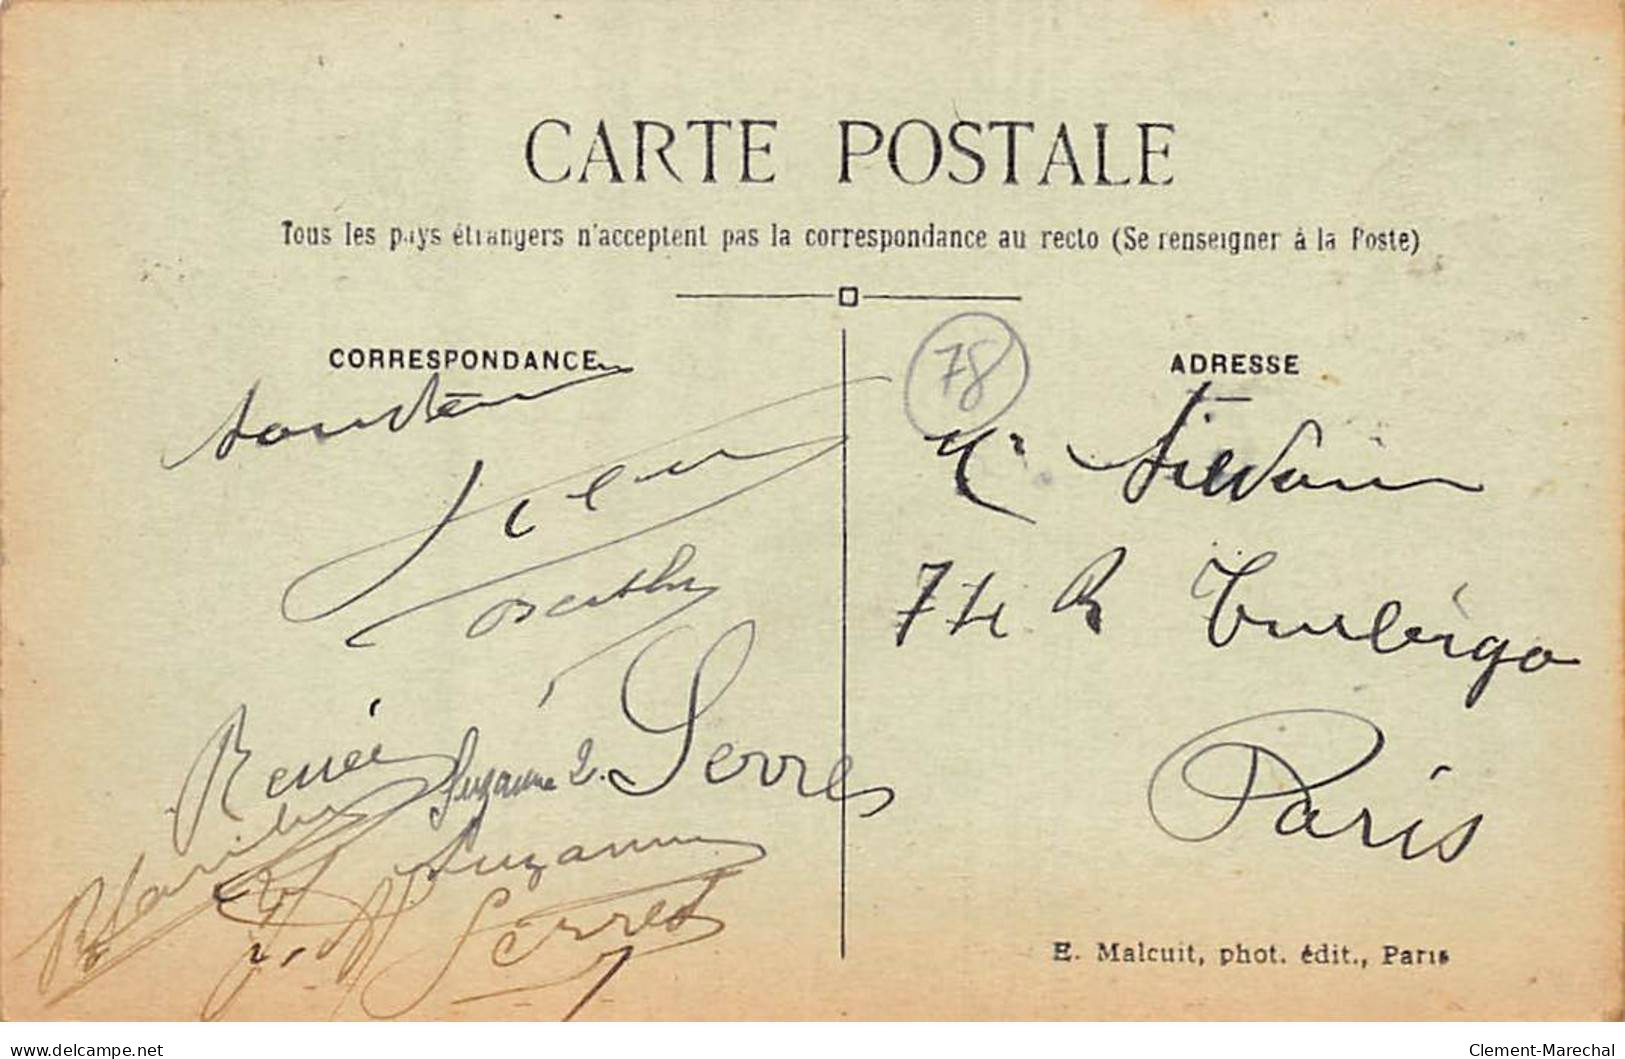 CARTE POSTALE
Tous les pays étrangers n'acceptent pas la correspondance au recto (Se renseigner à la Poste)
CORRESPONDANCE
78
ADRESSE
Mr Silvain
74 R Turbigo
Paris
Renée
Suzanne
Serres
Suzanne
Serres
E. Malcuit, phot. édit., Paris
delcampe.net
Clement-Marechal